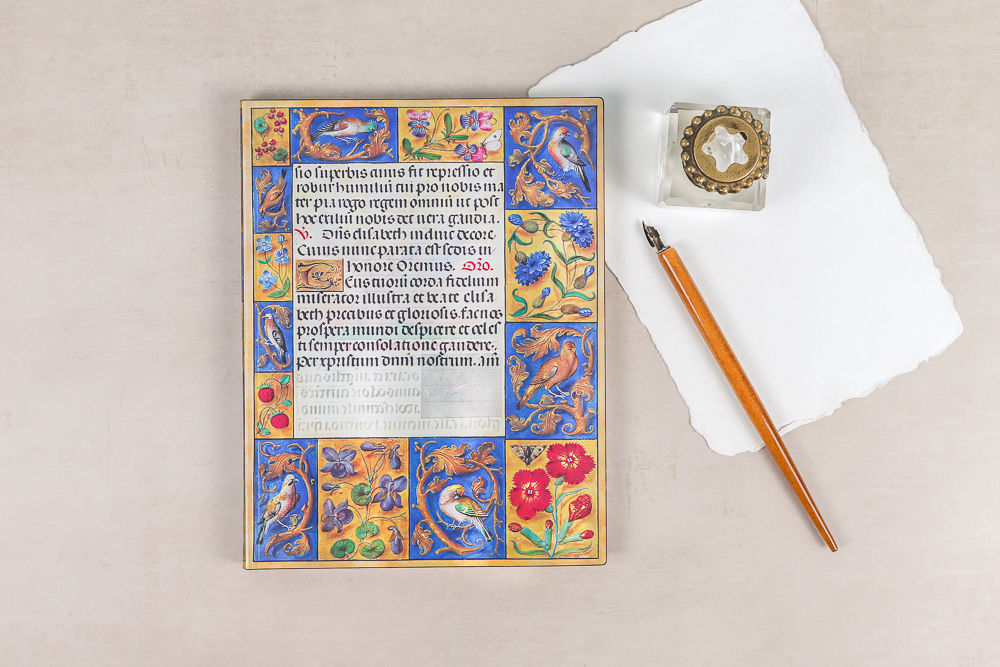 sio superbis anus fit repressio et
robur humiliū cui pro nobis ma
ter pia rogo regem omniū ut post
hoc exiliū nobis det uera gaudia.
V. Dñs elisabeth induit decore.
Cuius nunc parata est sedis in
honore Oremus. Oro.
Eus tuorū corda fidelium
miserator illustra et beate elisa
beth precibus et gloriosis. fac nos
prospera mundi despicere et celes
ti semper consolatione gaudere.
per xpristum dnm̄ nostrum. am̄